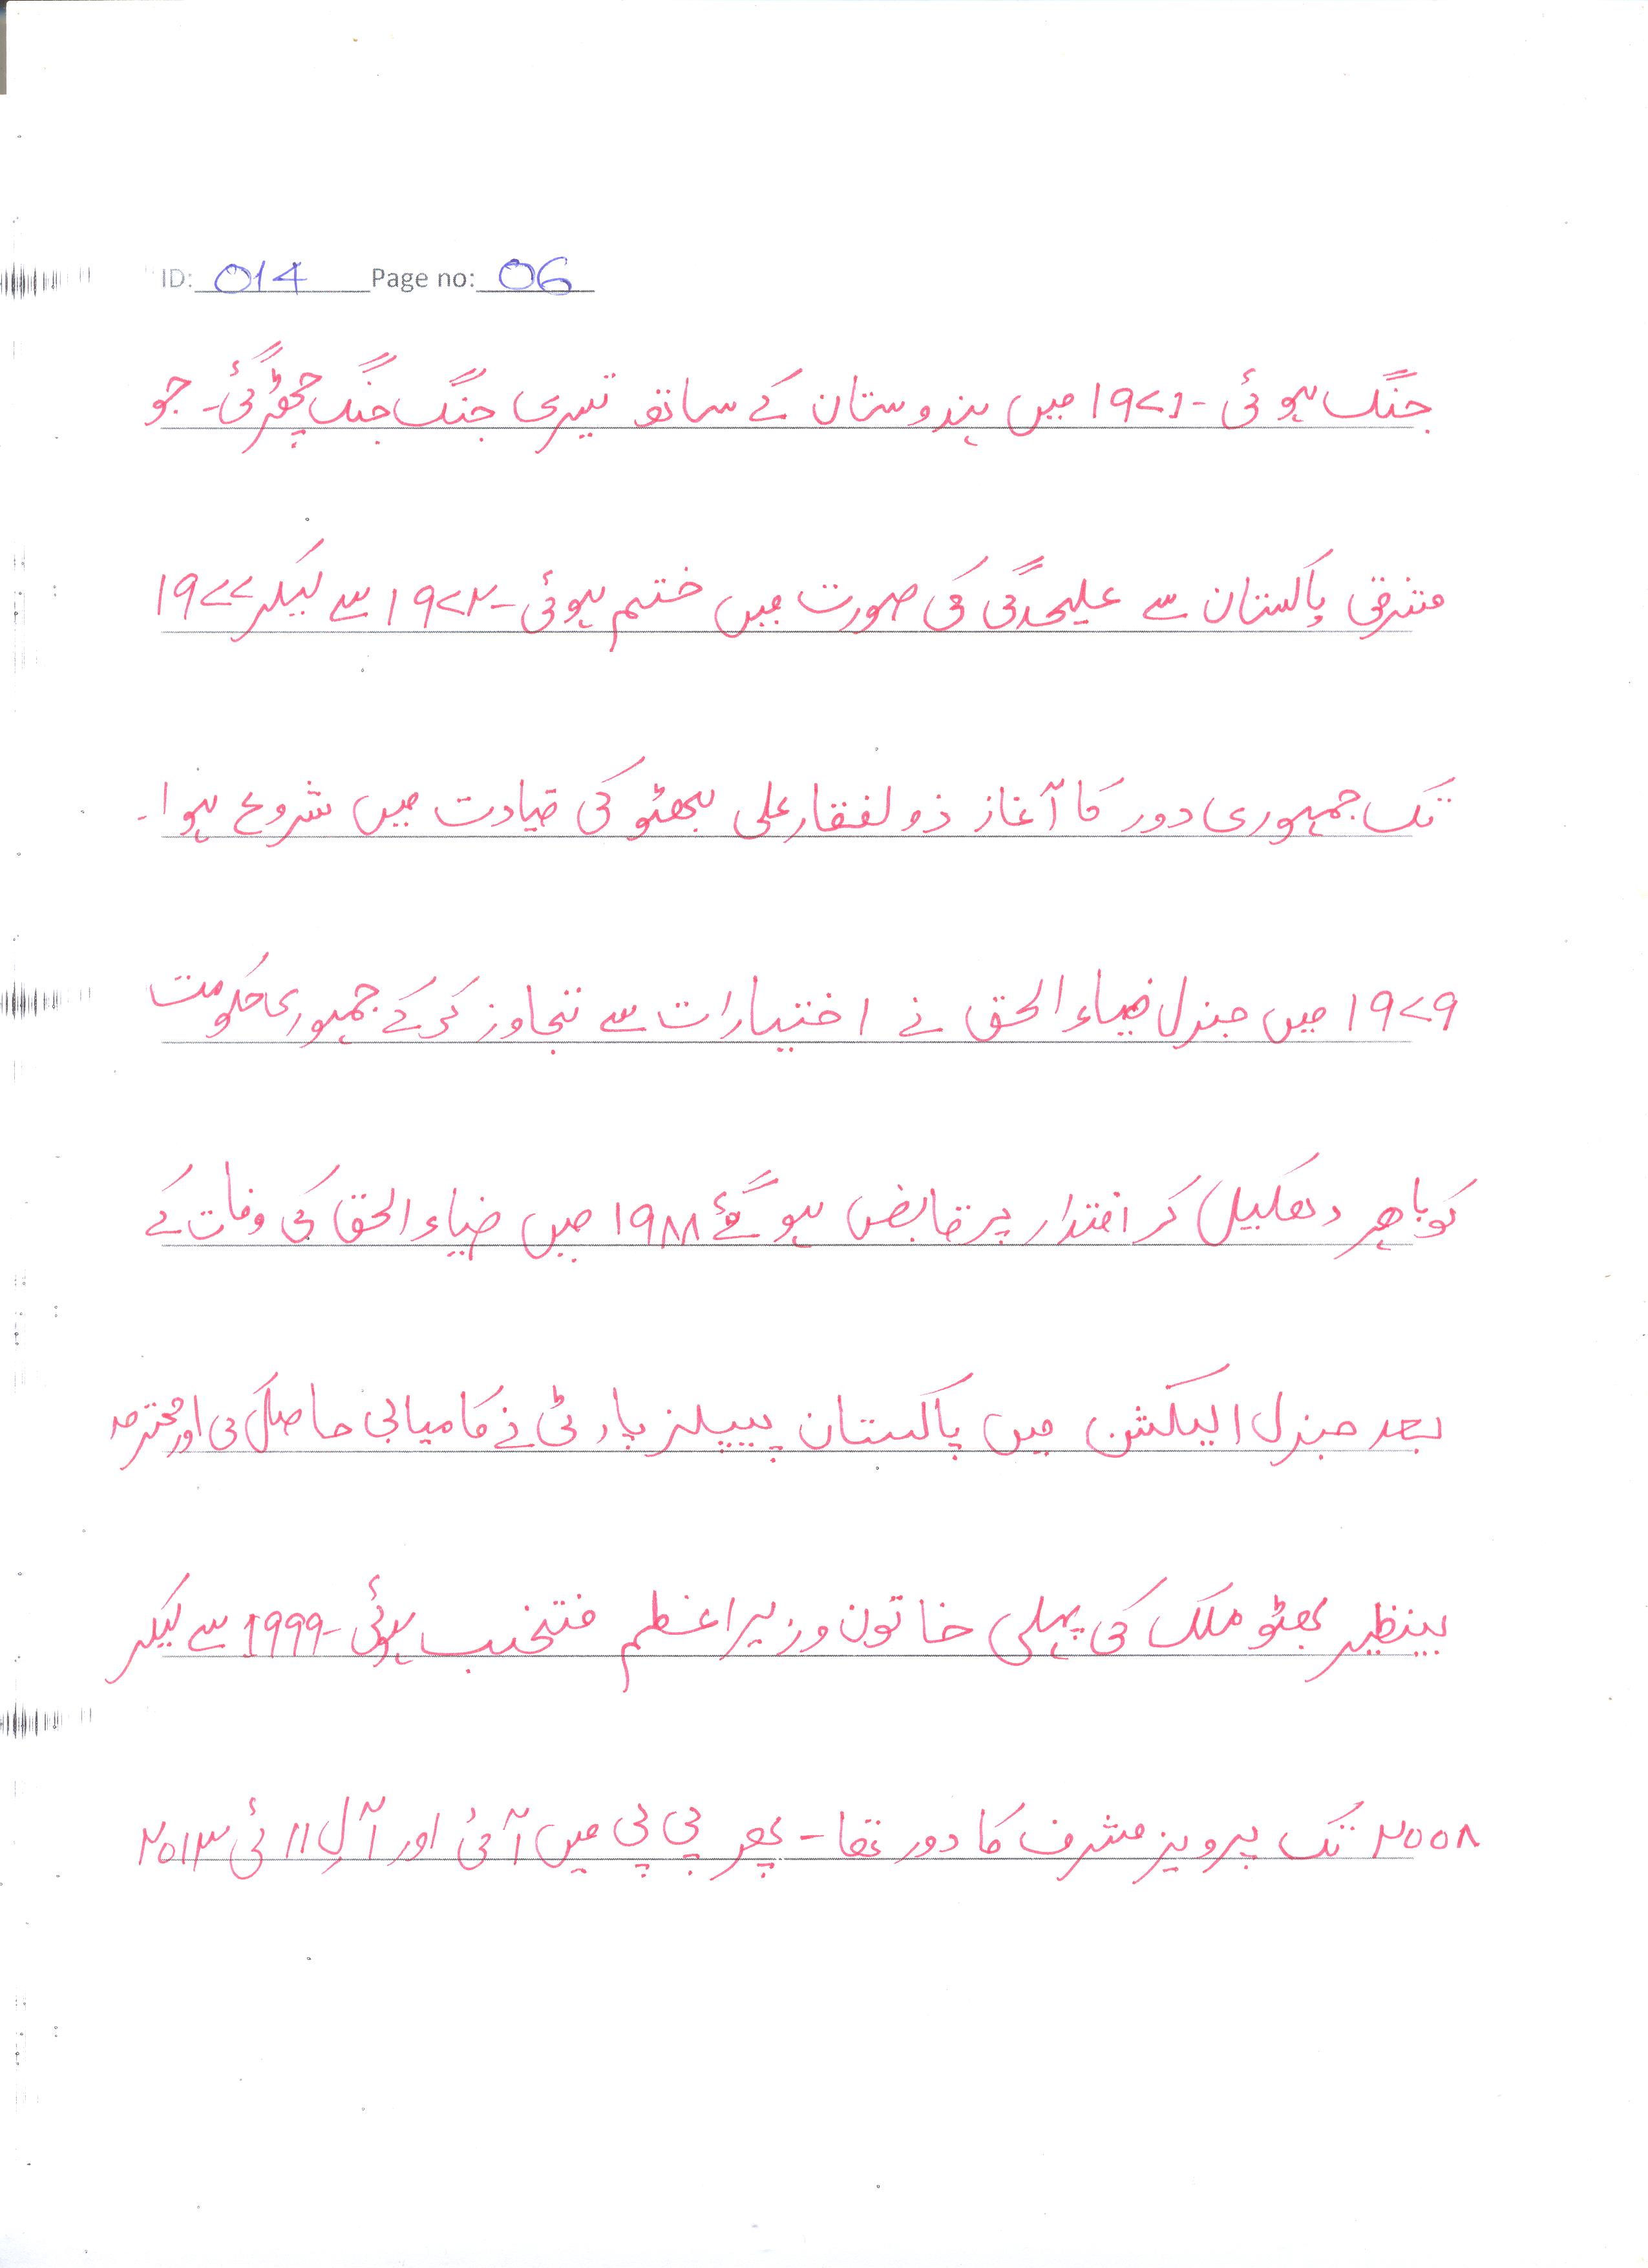 ID: 014 Page no: 06
جنگ ہوئی - ۱۹۷۱ میں ہندوستان کے ساتھ تیسری جنگ جنگ چھڑ گئی - جو
مشرقی پاکستان سے علیحدگی کی صورت میں ختم ہوئی - ۱۹۷۲ سے لیکر ۱۹۷۷
تک جمہوری دور کا آغاز ذولفقار علی بھٹو کی قیادت میں شروع ہوا -
۱۹۷۹ میں جنرل ضیاء الحق نے اختیارات سے تجاوز کر کے جمہوری حکومت
کو باھر دھکیل کر اقتدار پر قابض ہو گئے ۱۹۸۸ میں ضیاء الحق کی وفات کے
بعد جنرل الیکشن میں پاکستان پیپلز پارٹی نے کامیابی حاصل کی اور محترمہ
بینظیر بھٹو ملک کی پہلی خاتون وزیراعظم منتخب ہوئی - ۱۹۹۹ سے لیکر
۲۰۰۸ تک پرویز مشرف کا دور تھا - پھر پی پی میں آئی اور ۲۰۱۳